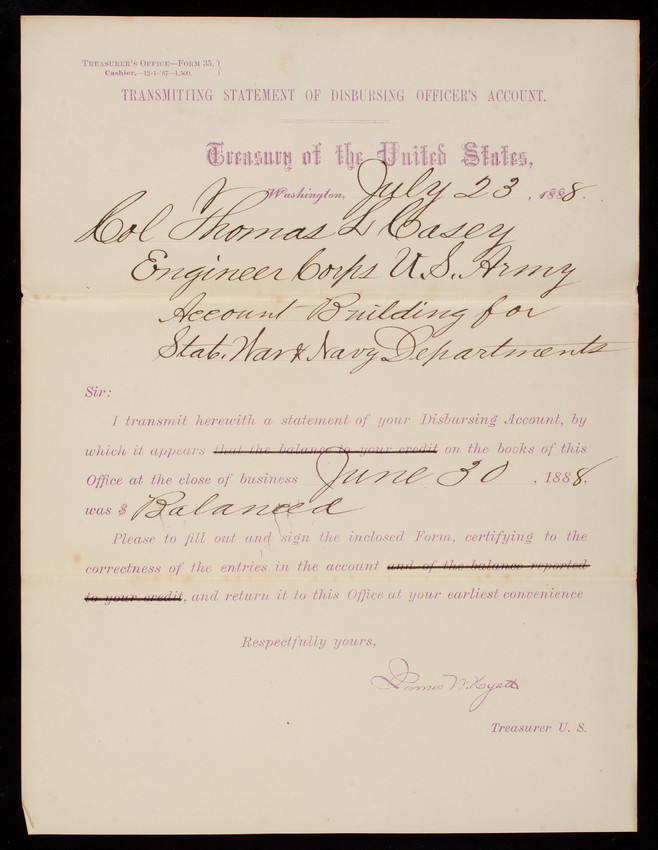 TREASURER'S OFFICE—FORM 35. }
Cashier,—12-1-'87—1,500. }
TRANSMITTING STATEMENT OF DISBURSING OFFICER'S ACCOUNT.
Treasury of the United States,
Washington, July 23, 1888.
Col Thomas L Casey
Engineer Corps U.S. Army
Account Building for
State, War & Navy Departments
Sir:
I transmit herewith a statement of your Disbursing Account, by
which it appears that the balance to your credit on the books of this
Office at the close of business June 30, 1888,
was $ Balanced
Please to fill out and sign the inclosed Form, certifying to the
correctness of the entries in the account and of the balance reported
to your credit, and return it to this Office at your earliest convenience
Respectfully yours,
James W. Hyatt
Treasurer U. S.